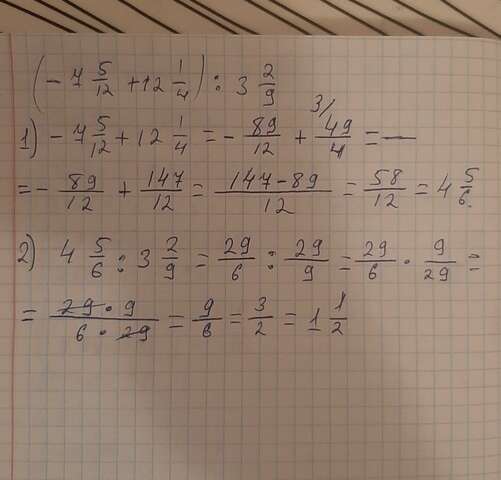 (- 7 5/12 + 12 1/4) : 3 2/9
1) - 7 5/12 + 12 1/4 = - 89/12 + 3/ 49/4 =
= - 89/12 + 147/12 = 147-89/12 = 58/12 = 4 5/6.
2) 4 5/6 : 3 2/9 = 29/6 : 29/9 = 29/6 · 9/29 =
= 29 · 9/6 · 29 = 9/6 = 3/2 = 1 1/2